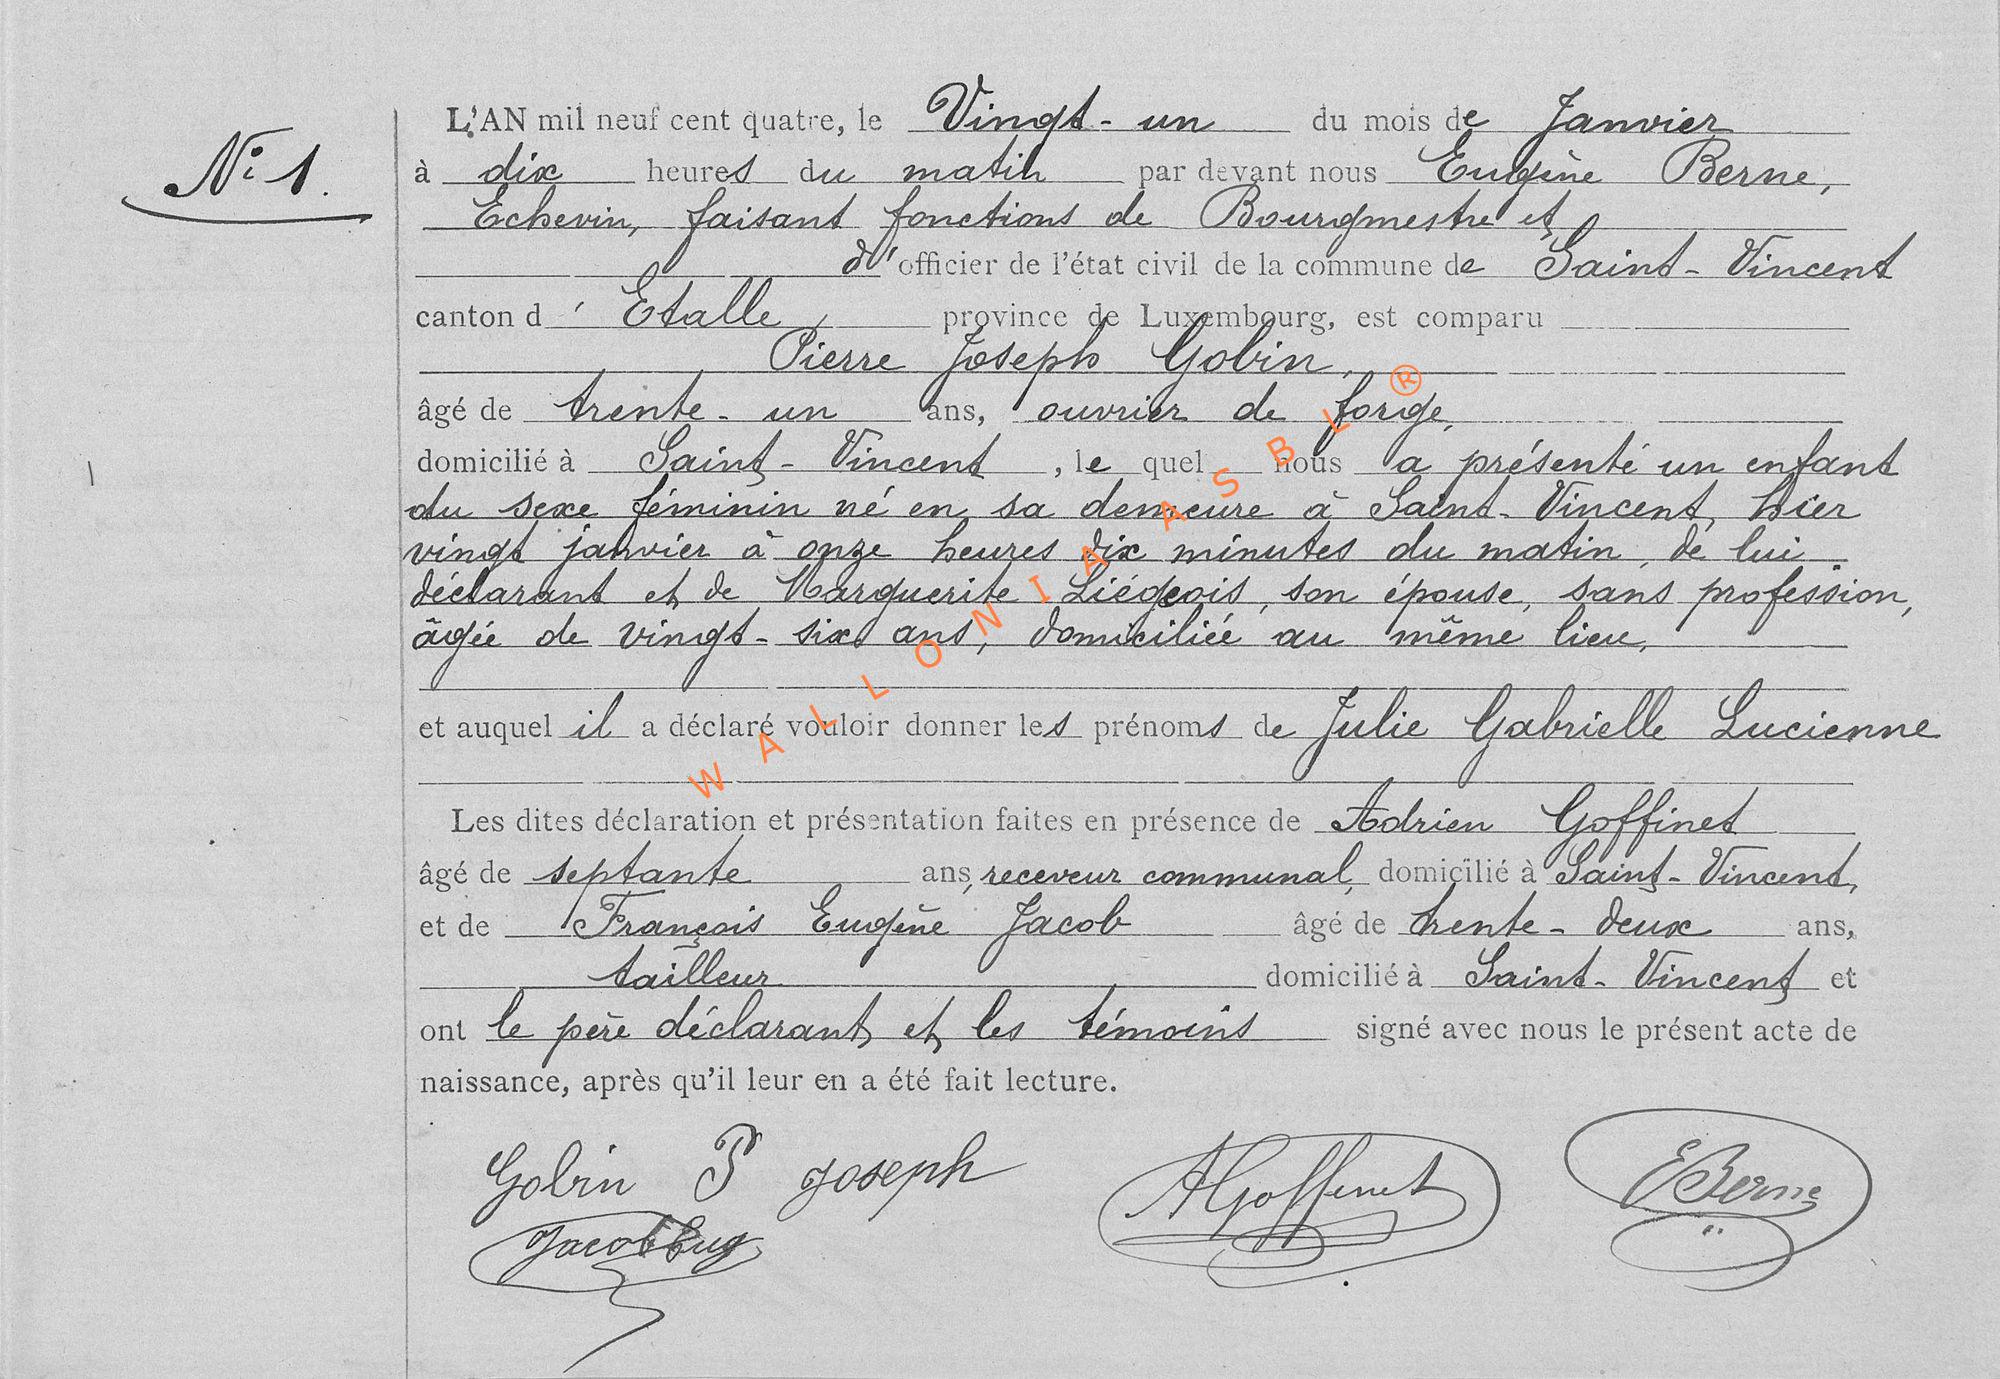 N° 1.
L'AN mil neuf cent quatre, le Vingt-un du mois de Janvier
à dix heures du matin par devant nous Eugène Berne,
Echevin, faisant fonctions de Bourgmestre et
d'officier de l'état civil de la commune de Saint-Vincent
canton d'Etalle, province de Luxembourg, est comparu
Pierre Joseph Gobin,
âgé de trente-un ans, ouvrier de forge,
domicilié à Saint-Vincent, le quel nous a présenté un enfant
du sexe féminin né en sa demeure à Saint-Vincent, hier
vingt janvier à onze heures dix minutes du matin, de lui
déclarant et de Marguerite Liégeois, son épouse, sans profession,
âgée de vingt-six ans, domiciliée au même lieu,
et auquel il a déclaré vouloir donner les prénoms de Julie Gabrielle Lucienne
Les dites déclaration et présentation faites en présence de Adrien Goffinet
âgé de septante ans, receveur communal, domicilié à Saint-Vincent,
et de François Eugène Jacob âgé de trente-deux ans,
tailleur domicilié à Saint-Vincent et
ont le père déclarant et les témoins signé avec nous le présent acte de
naissance, après qu'il leur en a été fait lecture.
Gobin P Joseph AGoffinet EBerne
Jacob Eug
WALLONIA ASBL®